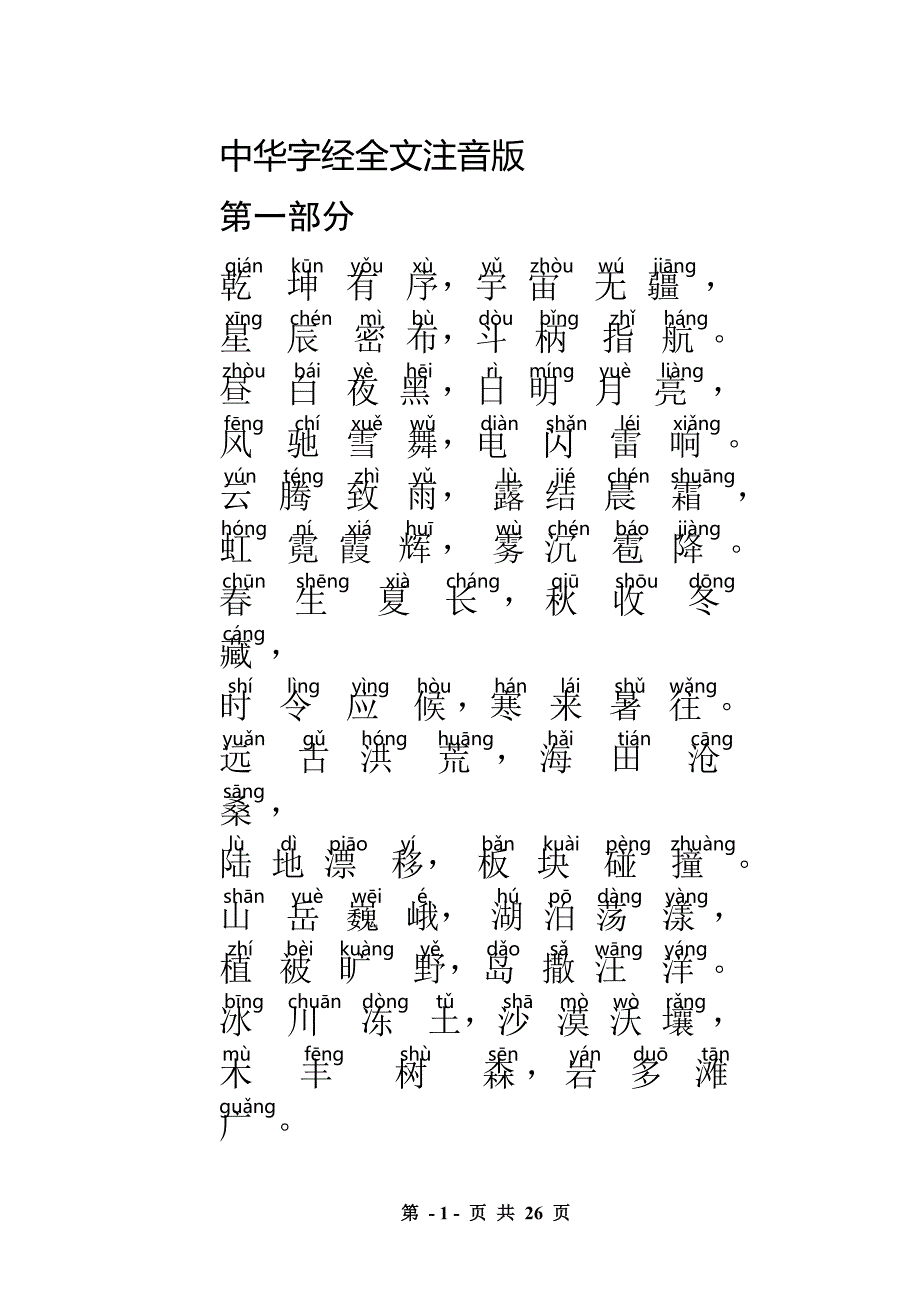 中华字经全文注音版
第一部分
qián kūn yǒu xù yǔ zhòu wú jiāng
乾坤有序，宇宙无疆，
xīng chén mì bù dòu bǐng zhǐ háng
星辰密布，斗柄指航。
zhòu bái yè hēi rì míng yuè liàng
昼白夜黑，日明月亮，
fēng chí xuě wǔ diàn shǎn léi xiǎng
风驰雪舞，电闪雷响。
yún téng zhì yǔ lù jié chén shuāng
云腾致雨，露结晨霜，
hóng ní xiá huī wù chén báo jiàng
虹霓霞辉，雾沉雹降。
chūn shēng xià cháng qiū shōu dōng
春生夏长，秋收冬
cáng
藏，
shí lìng yìng hòu hán lái shǔ wǎng
时令应候，寒来暑往。
yuǎn gǔ hóng huāng hǎi tián cāng
远古洪荒，海田沧
sāng
桑，
lù dì piāo yí bǎn kuài pèng zhuàng
陆地漂移，板块碰撞。
shān yuè wēi é hú pō dàng yàng
山岳巍峨，湖泊荡漾，
zhí bèi kuàng yě dǎo sǎ wāng yáng
植被旷野，岛撒汪洋。
bīng chuān dòng tǔ shā mò wò rǎng
冰川冻土，沙漠沃壤，
mù fēng shù sēn yán duō tān
木丰树森，岩多滩
guǎng
广。
第 - 1 - 页 共 26 页